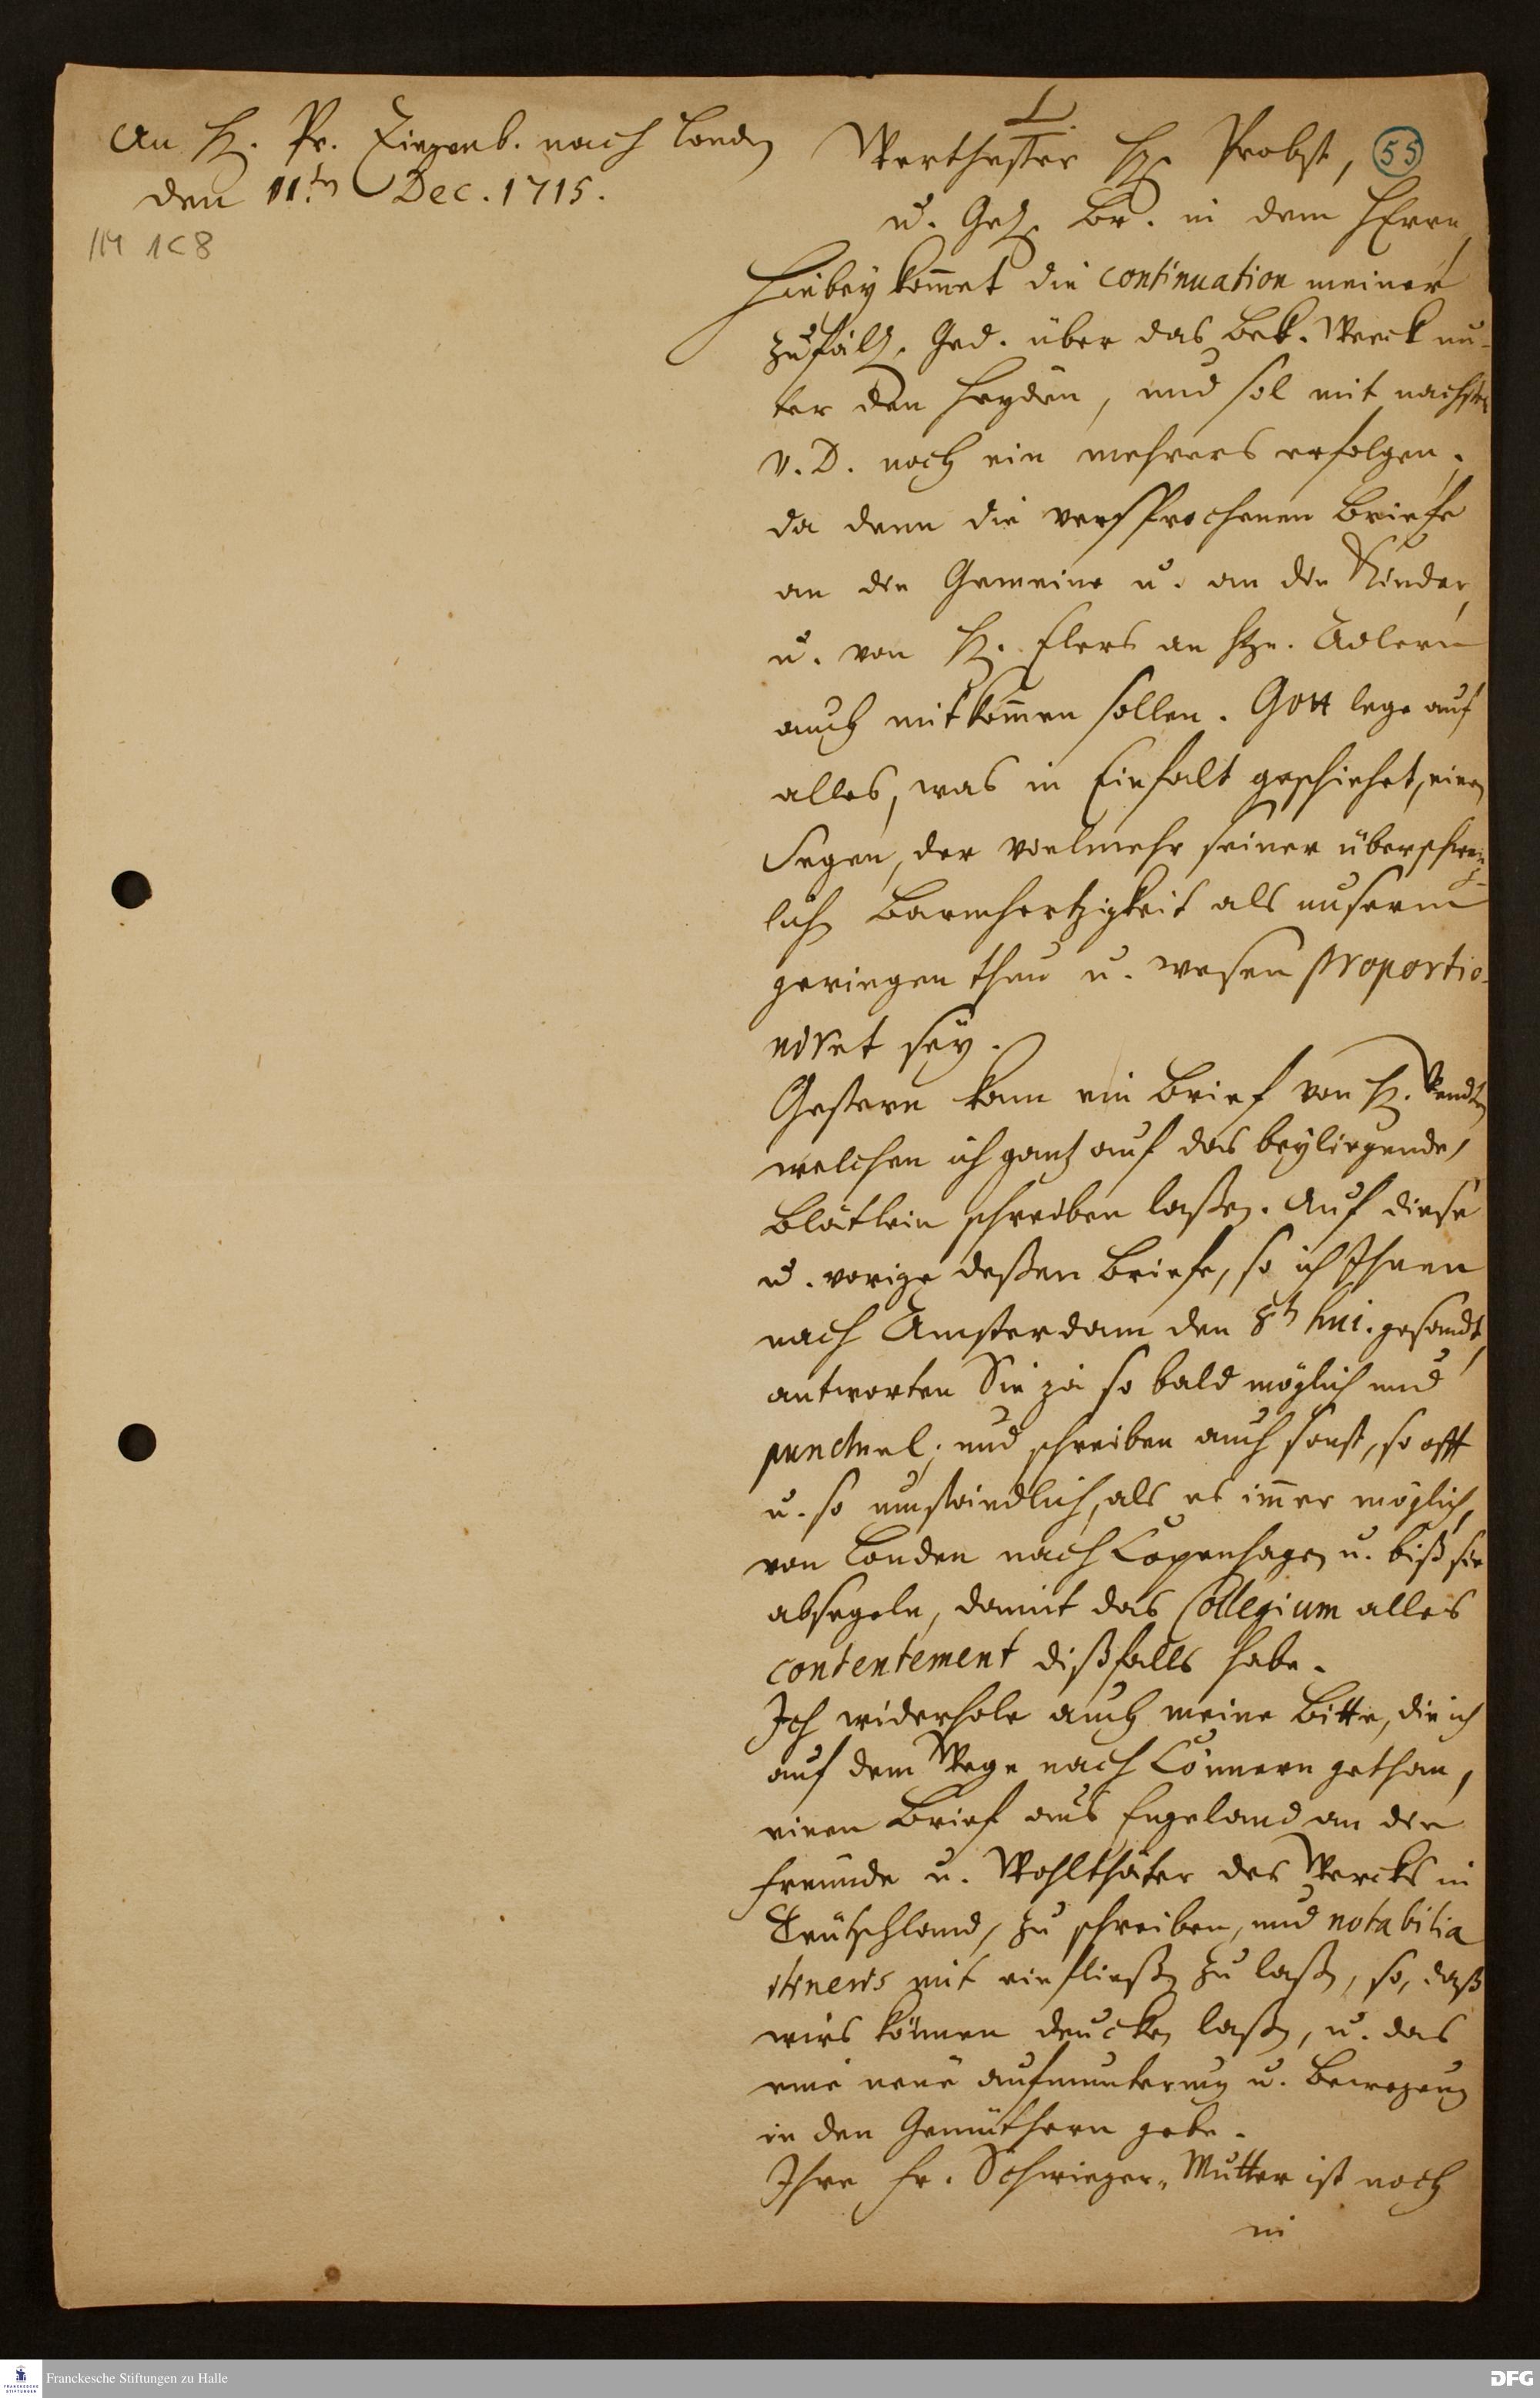 An H. Pr. Ziegenb. nach Londen
den 11.ten Dec. 1715.
/M 1C8
1.
55
Werthester H. Probst,
u. Gel. Br. in dem HErrn,
Hiebey kom̄et die continuation meiner
zufäll. Ged. über das Bek. Werck un-
ter den Heyden, und sol mit nechsten
v. D. noch ein mehrers erfolgen,
da denn die versprochenen Briefe
an die Gemeine u. an die Kinder,
u. von H. Elers an Hrn. Adlern
auch mitkom̄en sollen. Gott lege auf
alles, was in Einfalt geschiehet, einen
Segen, der vielmehr seiner überschweng-
lich Barmhertzigkeit als unserm
geringen thun u. wesen proportio-
niret sey.
Gestern kam ein Brief von H. Wendten
welchen ich gantz auf das beyliegende
Blätlein schreiben laßen. Auf diese
u. vorige deßen Briefe, so ich Ihnen
nach Amsterdam den 8ten hui. gesandt,
antworten Sie ja so bald möglich und
punctuel; und schreiben auch sonst, so offt
u. so umständlich, als es im̄er möglich,
von Londen nach Copenhagen u. biß sie
absegeln, damit das Collegium alles
contentement dißfalls habe.
Ich widerhole auch meine Bitte, die ich
auf dem Wege nach Cönnern gethan,
einen Brief aus Engeland an die
Freunde u. Wohlthäter des Wercks in
Teutschland, zu schreiben, und notabilia
itineris mit einfließen zu laßen, so, daß
wirs können drucken laßen, u. das
eine neue aufmunterung u. Bewegung
in den Gemüthern gebe.
Ihre Fr. Schwieger-Mutter ist noch
in
Franckesche Stiftungen zu Halle
FRANCKESCHE STIFTUNGEN
DFG